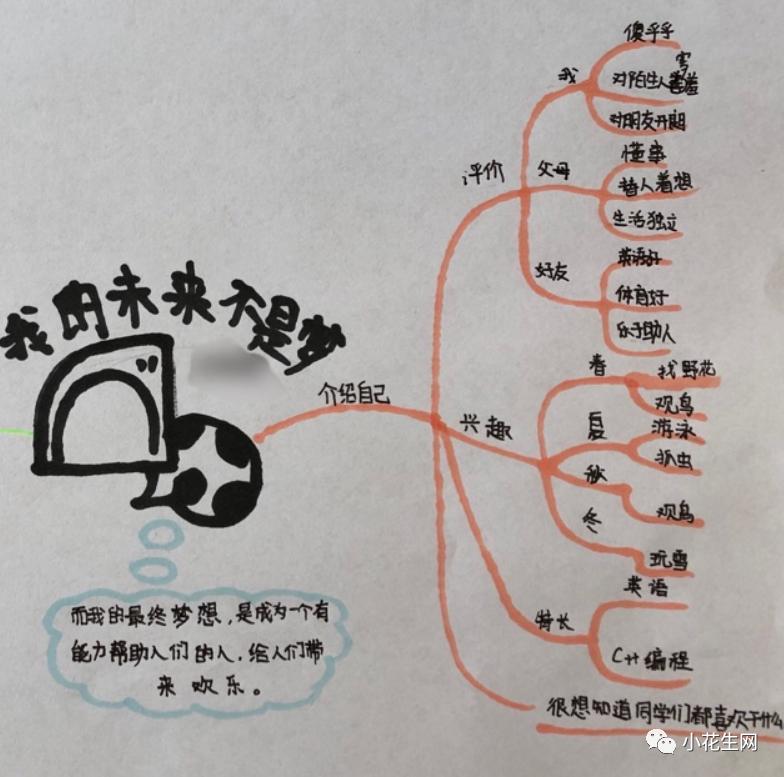 我的未来不是梦
介绍自己
评价
我
傻乎乎
对陌生人害羞
对朋友开朗
父母
懂事
替人着想
生活独立
好友
英语好
体育好
乐于助人
兴趣
春
找野花
观鸟
夏
游泳
抓虫
秋
观鸟
冬
玩雪
特长
英语
C++编程
很想知道同学们都喜欢干什么
而我的最终梦想,是成为一个有
能力帮助人们的人,给人们带
来欢乐。
小花生网